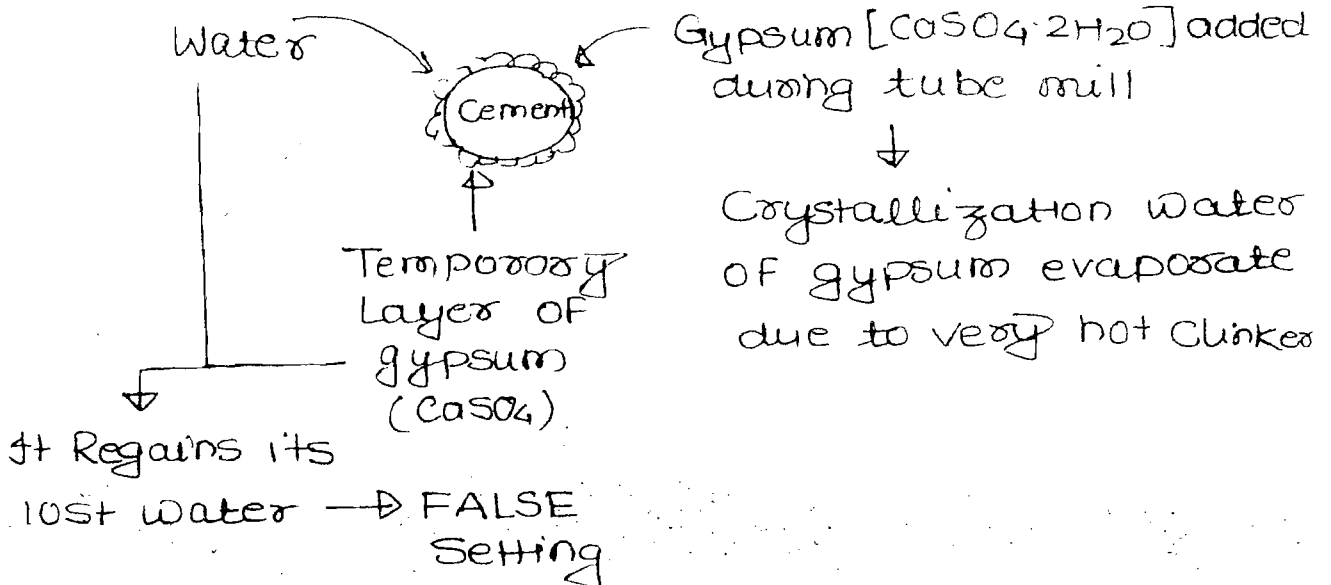 Water
Gypsum [CaSO4·2H2O] added
during tube mill
Cement
Crystallization Water
OF gypsum evaporate
due to very hot Clinker
Temporory
Layer OF
gypsum
(CaSO4)
It Regains its
lost water → FALSE
Setting